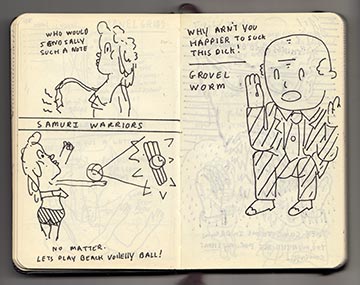 WHO WOULD
SEND SALLY
SUCH A NOTE
SAMURI WARRIORS
NO MATTER.
LETS PLAY BEACH VOLLELLY BALL!
WHY ARN'T YOU
HAPPIER TO SUCK
THIS DICK!
GROVEL
WORM